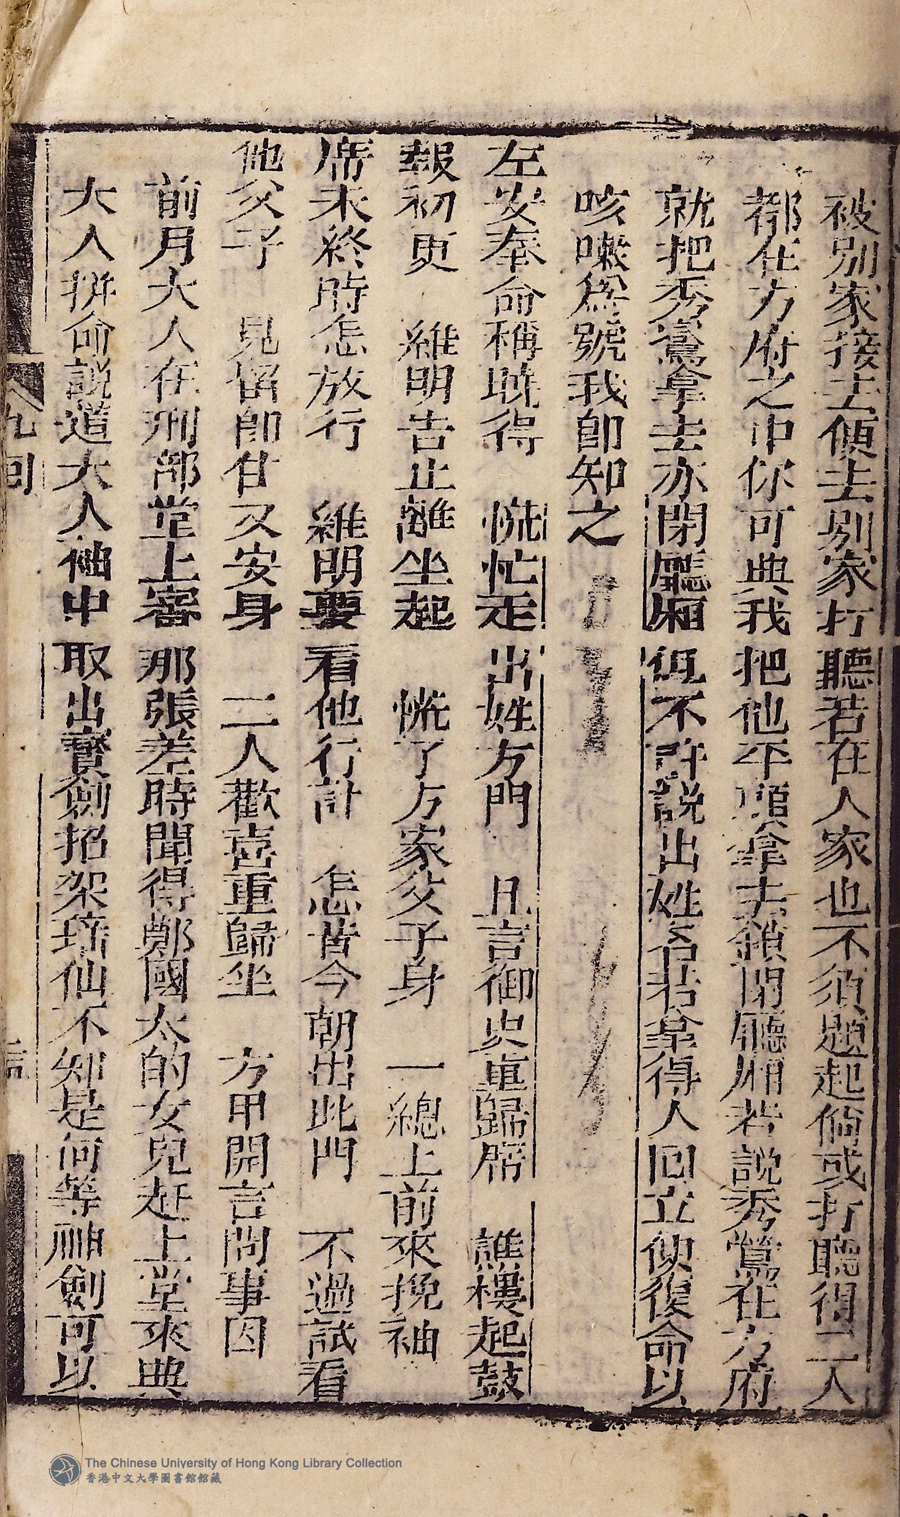 被別家接去偵去別家打聽若在人家也不須題起倘或打聽得二人
都在方府之中你可與我把他平頭拿去鎖閉廳廂若說秀鶯在方府
就把秀鶯拿去亦閉廳廂但不許說出姓名若拿得人回立便復命以
咳嗽爲號我即知之
左安奉命稱旣得　慌忙走出姓方門　且言御史重歸席　譙樓起鼓
報初更　維明告止離坐起　慌了方家父子身　一總上前來挽袖
席未終時怎放行　維明要看他行計　怎肯今朝出此門　不過試看
他父子　見留即甘又安身　二人歡喜重歸坐　方甲開言問事因
前月大人在刑部堂上審那張差時聞得鄭國太的女兒赶上堂來與
大人拼命說道大人袖中取出寶劍招架培仙不知是何等神劍可以
九回
The Chinese University of Hong Kong Library Collection
香港中文大學圖書館館藏